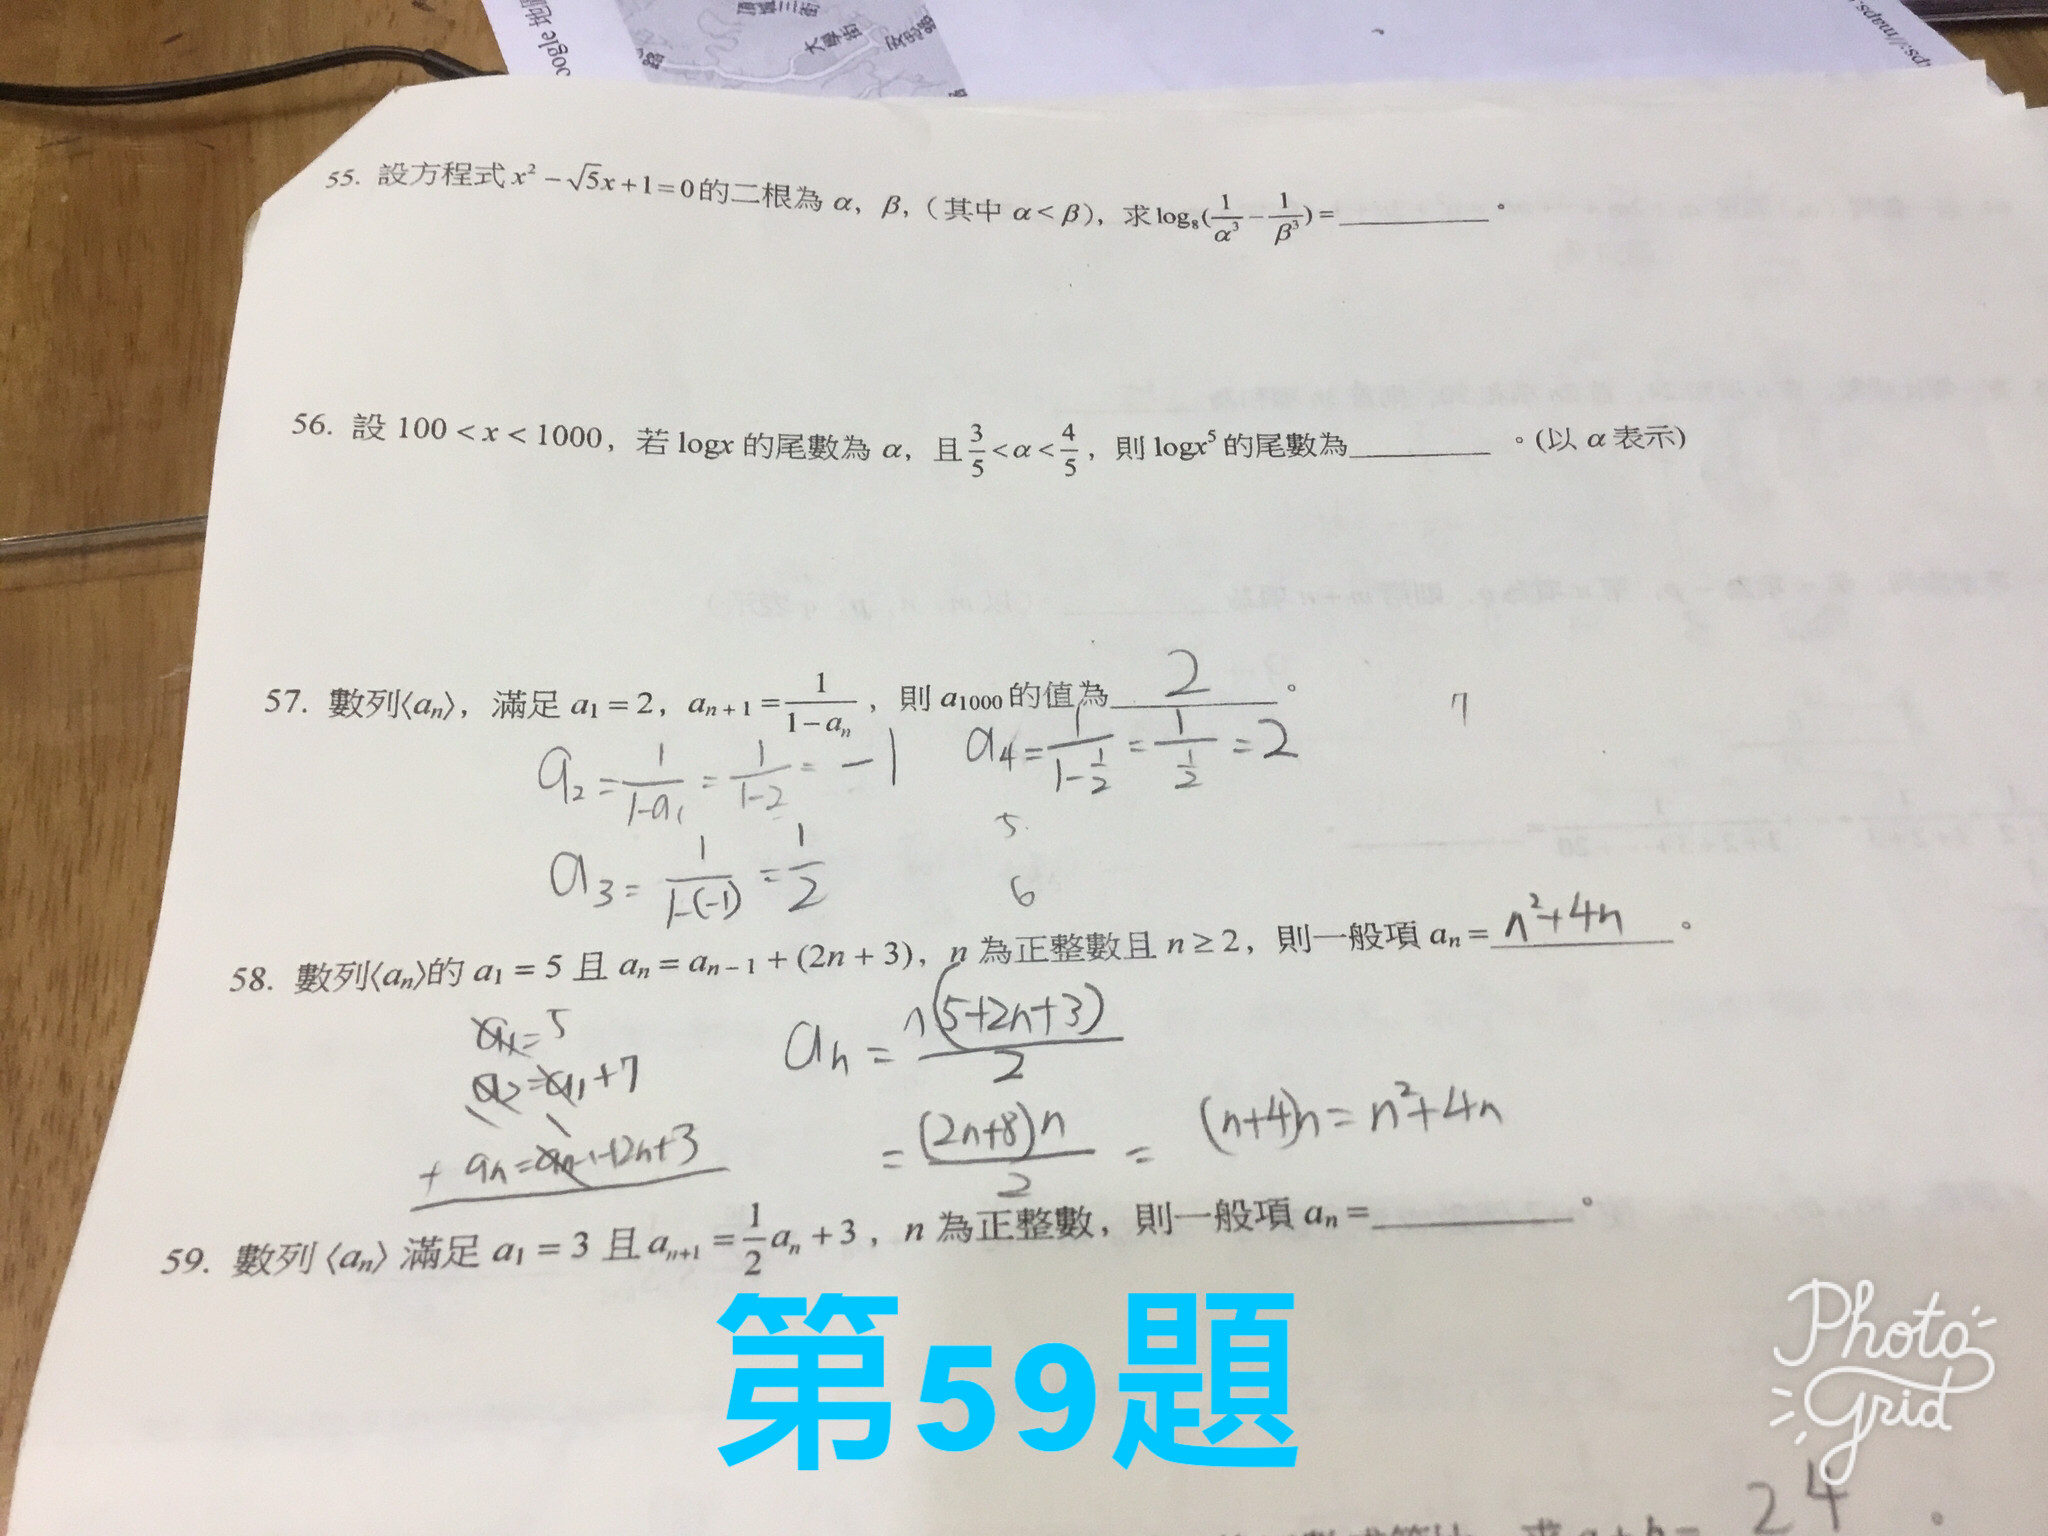 oogle 地圖
頂城三街
大學街
安忠路
路
55. 設方程式 x² − √5x + 1 = 0 的二根為 α, β, (其中 α < β), 求 log₈(1/α³ − 1/β³) = ________。
56. 設 100 < x < 1000, 若 logx 的尾數為 α, 且 3/5 < α < 4/5, 則 logx⁵ 的尾數為________。(以 α 表示)
57. 數列⟨aₙ⟩, 滿足 a₁ = 2, aₙ₊₁ = 1/(1−aₙ), 則 a₁₀₀₀ 的值為 2 。
7
a₂ = 1/(1−a₁) = 1/(1−2) = −1
a₄ = 1/(1−1/2) = 1/(1/2) = 2
5.
a₃ = 1/(1−(−1)) = 1/2
6
58. 數列⟨aₙ⟩的 a₁ = 5 且 aₙ = aₙ₋₁ + (2n + 3), n 為正整數且 n ≥ 2, 則一般項 aₙ = n²+4n 。
a₁ = 5
a₂ = a₁ + 7
+ aₙ = aₙ₋₁ + 2n+3
aₙ = n(5+2n+3)/2
= (2n+8)n/2 = (n+4)n = n²+4n
59. 數列 ⟨aₙ⟩ 滿足 a₁ = 3 且 aₙ₊₁ = 1/2 aₙ + 3, n 為正整數, 則一般項 aₙ = ________。
第59題
Photo
Grid
求 a + b = 24 。